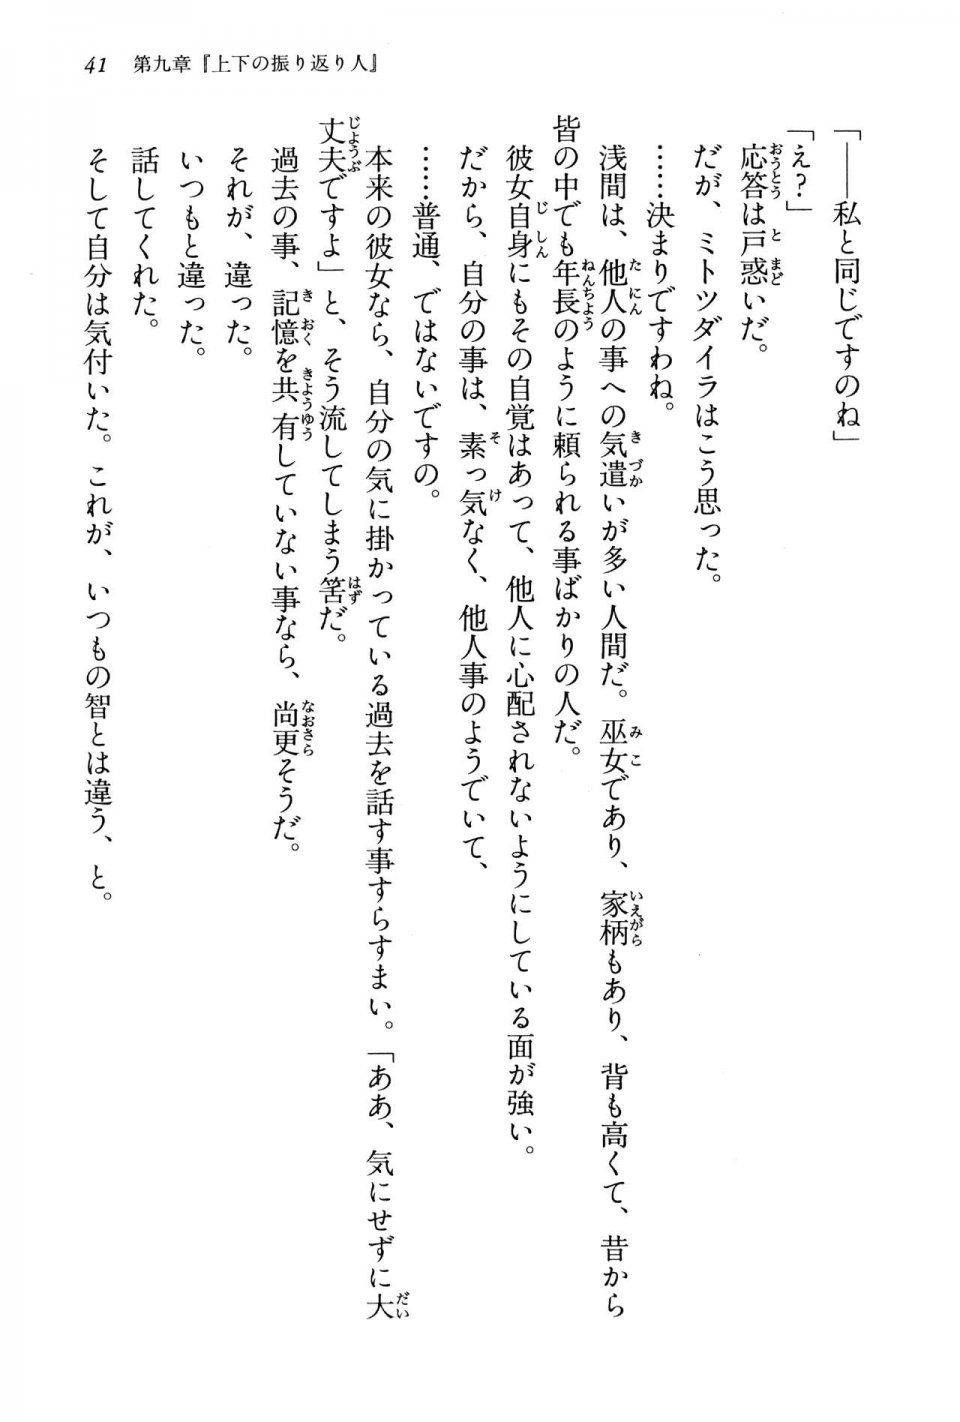 41　第九章『上下の振り返り人』
「――私と同じですのね」
「え？」
応答は戸惑いだ。
だが、ミトツダイラはこう思った。
……決まりですわね。
浅間は、他人の事への気遣いが多い人間だ。巫女であり、家柄もあり、背も高くて、昔から
皆の中でも年長のように頼られる事ばかりの人だ。
彼女自身にもその自覚はあって、他人に心配されないようにしている面が強い。
だから、自分の事は、素っ気なく、他人事のようでいて、
……普通、ではないですの。
本来の彼女なら、自分の気に掛かっている過去を話す事すらすまい。「ああ、気にせずに大
丈夫ですよ」と、そう流してしまう筈だ。
過去の事、記憶を共有していない事なら、尚更そうだ。
それが、違った。
いつもと違った。
話してくれた。
そして自分は気付いた。これが、いつもの智とは違う、と。